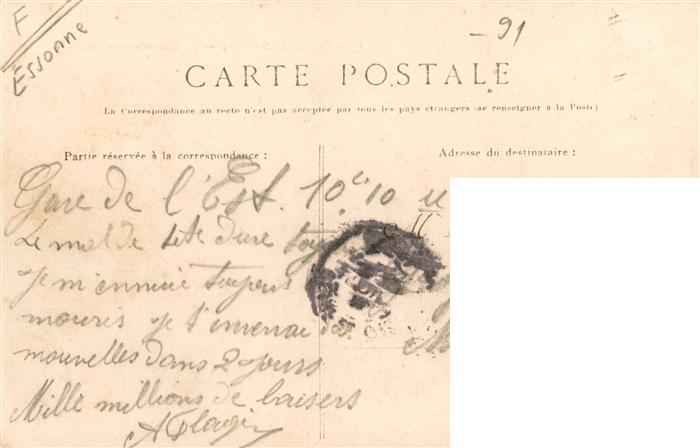 F
Essonne
-91
CARTE POSTALE
La Correspondance au recto n'est pas acceptée par tous les pays étrangers (se renseigner à la Poste)
Partie réservée à la correspondance :
Adresse du destinataire :
Gare de l'Est. 10 10
Le mal de tête dure
je m'ennuie toujours
je t'enverrai
nouvelles dans 2 jours
Mille millions de baisers